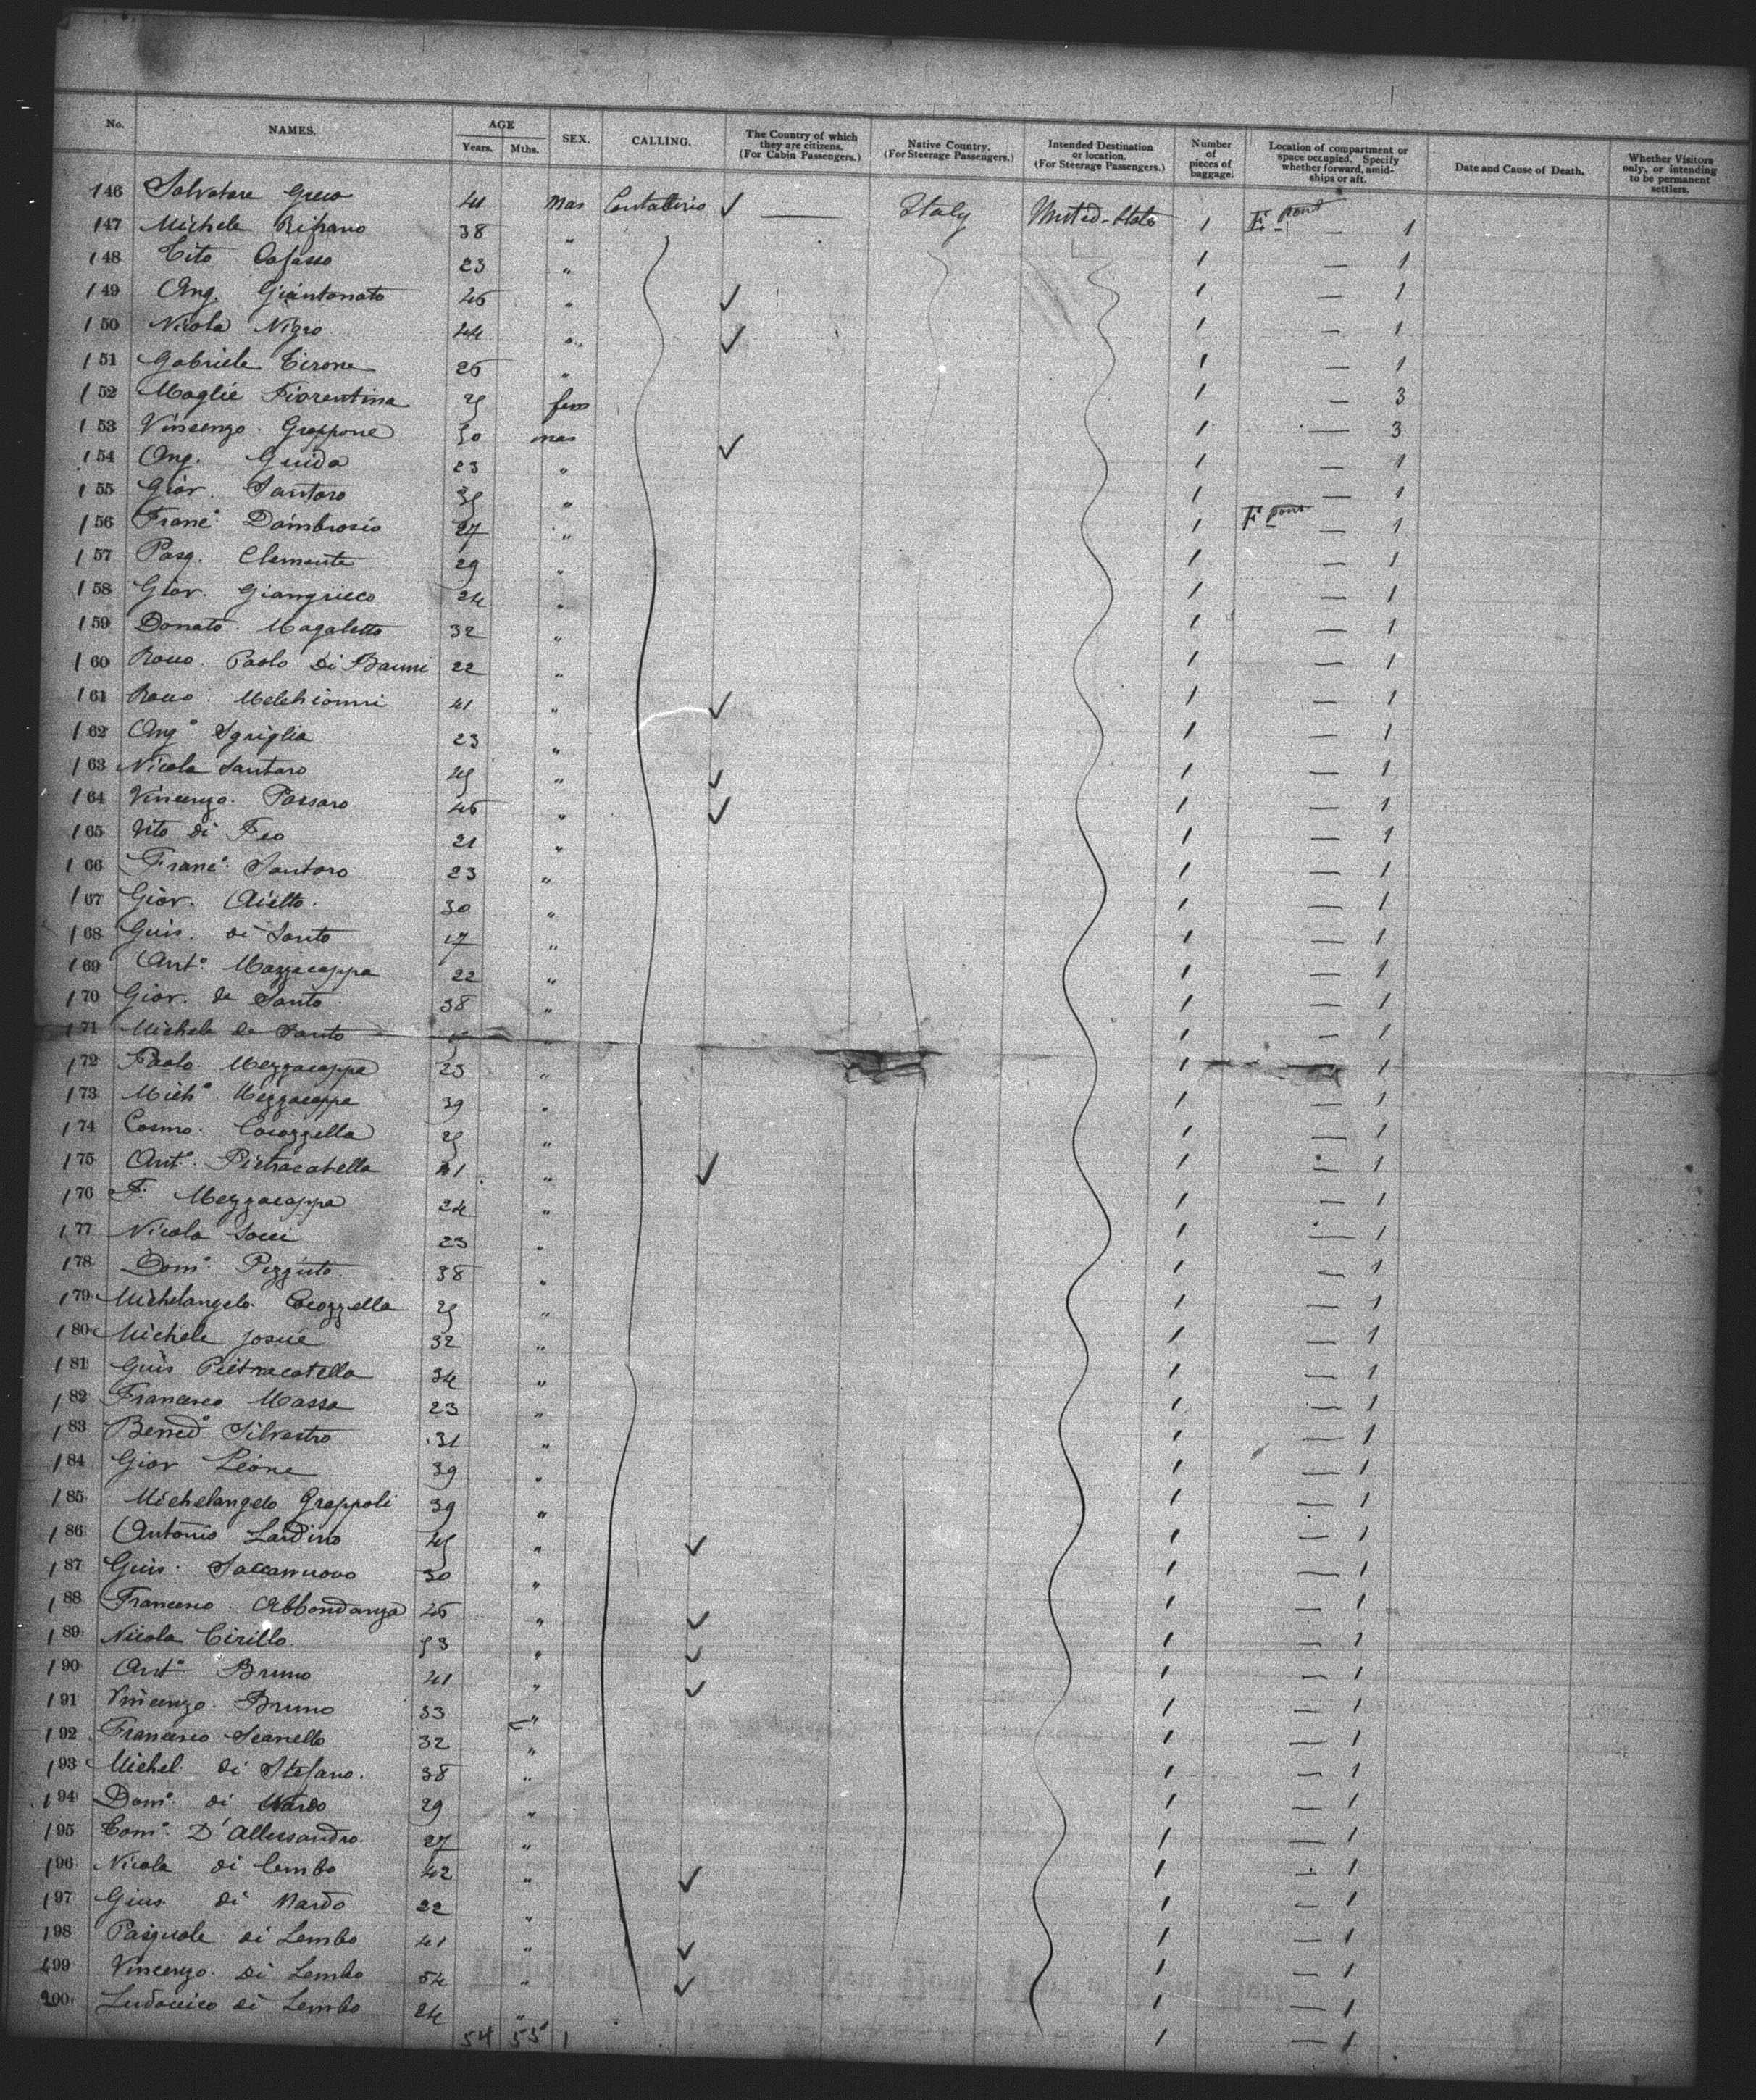 No. NAMES. AGE Years. Mths. SEX. CALLING. The Country of which they are citizens. (For Cabin Passengers.) Native Country. (For Steerage Passengers.) Intended Destination or location. (For Steerage Passengers.) Number of pieces of baggage. Location of compartment or space occupied. Specify whether forward, amidships or aft. Date and Cause of Death. Whether Visitors only, or intending to be permanent settlers.
146 Salvatore Greco 41 mas ✓ — Italy United-States 1
147 Michele Bifrano 38 " 1 — 1
148 Tito Cafasso 23 " 1 — 1
149 Ang. Giantonato 45 " ✓ 1 — 1
150 Nicola Nigro 44 " ✓ 1 — 1
151 Gabriele Tirone 26 " 1 — 1
152 Maglié Fiorentina 25 fem 1 — 3
153 Vincenzo Grappone 50 mas ✓ 1 — 3
154 Ang. Guida 23 " 1 — 1
155 Giov. Santoro 35 " 1 — 1
156 Franc° Dambrosio 27 " 1 — 1
157 Pasq. Clemente 29 " 1 — 1
158 Giov. Giangrieco 24 " 1 — 1
159 Donato Magaletto 32 " 1 — 1
160 Rocco Paolo Di 22 " 1 — 1
161 Rocco Melchionni 41 " ✓ 1 — 1
162 Ang° Sgriglia 23 " 1 — 1
163 Nicola Santoro 45 " ✓ 1 — 1
164 Vincenzo Passaro 45 " ✓ 1 — 1
165 Vito di Feo 21 " 1 — 1
166 Franc° Santoro 23 " 1 — 1
167 Giov. Aiello 30 " 1 — 1
168 Guis. di Santo 17 " 1 — 1
169 Ant° Mazzacappa 22 " 1 — 1
170 Giov. de Santo 38 " 1 — 1
171 Michele de Santo 1 — 1
172 Paolo Mezzacappa 23 " 1 1
173 Mich° Mezzacappa 39 " 1 — 1
174 Cosmo Cocozzella 25 " 1 — 1
175 Ant° Pietracatella 41 " ✓ 1 — 1
176 F. Mezzacappa 24 " 1 — 1
177 Nicola Socci 23 " 1 — 1
178 Dom° Pizzuto 38 " 1 — 1
179 Michelangelo Cocozzella 25 " 1 — 1
180 Michele Josue 32 " 1 — 1
181 Guis Pietracatella 34 " 1 — 1
182 Francesco Massa 23 " 1 — 1
183 Bened° Silvestro 31 " 1 — 1
184 Giov Leone 39 " 1 — 1
185 Michelangelo Grappoli 39 " 1 — 1
186 Antonio Lardino 45 " ✓ 1 — 1
187 Guis. Saccannovo 30 " 1 — 1
188 Francesco Abbondanza 45 " ✓ 1 — 1
189 Nicola Cirillo 53 " ✓ 1 — 1
190 Ant° Bruno 41 " ✓ 1 — 1
191 Vincenzo Bruno 33 " 1 — 1
192 Francesco Scanello 32 " 1 — 1
193 Michel. di Stefano. 38 " 1 — 1
194 Dom° di Nardo 29 " 1 — 1
195 Tom° D'Allessandro. 27 " 1 — 1
196 Nicola di Lembo 42 " ✓ 1 — 1
197 Gius. di Nardo 22 " 1 — 1
198 Pasquale di Lembo 41 " ✓ 1 — 1
199 Vincenzo Di Lembo 54 " ✓ 1 — 1
200 Ludovico di Lembo 24 " 1 — 1
54 55 1 1 — 1